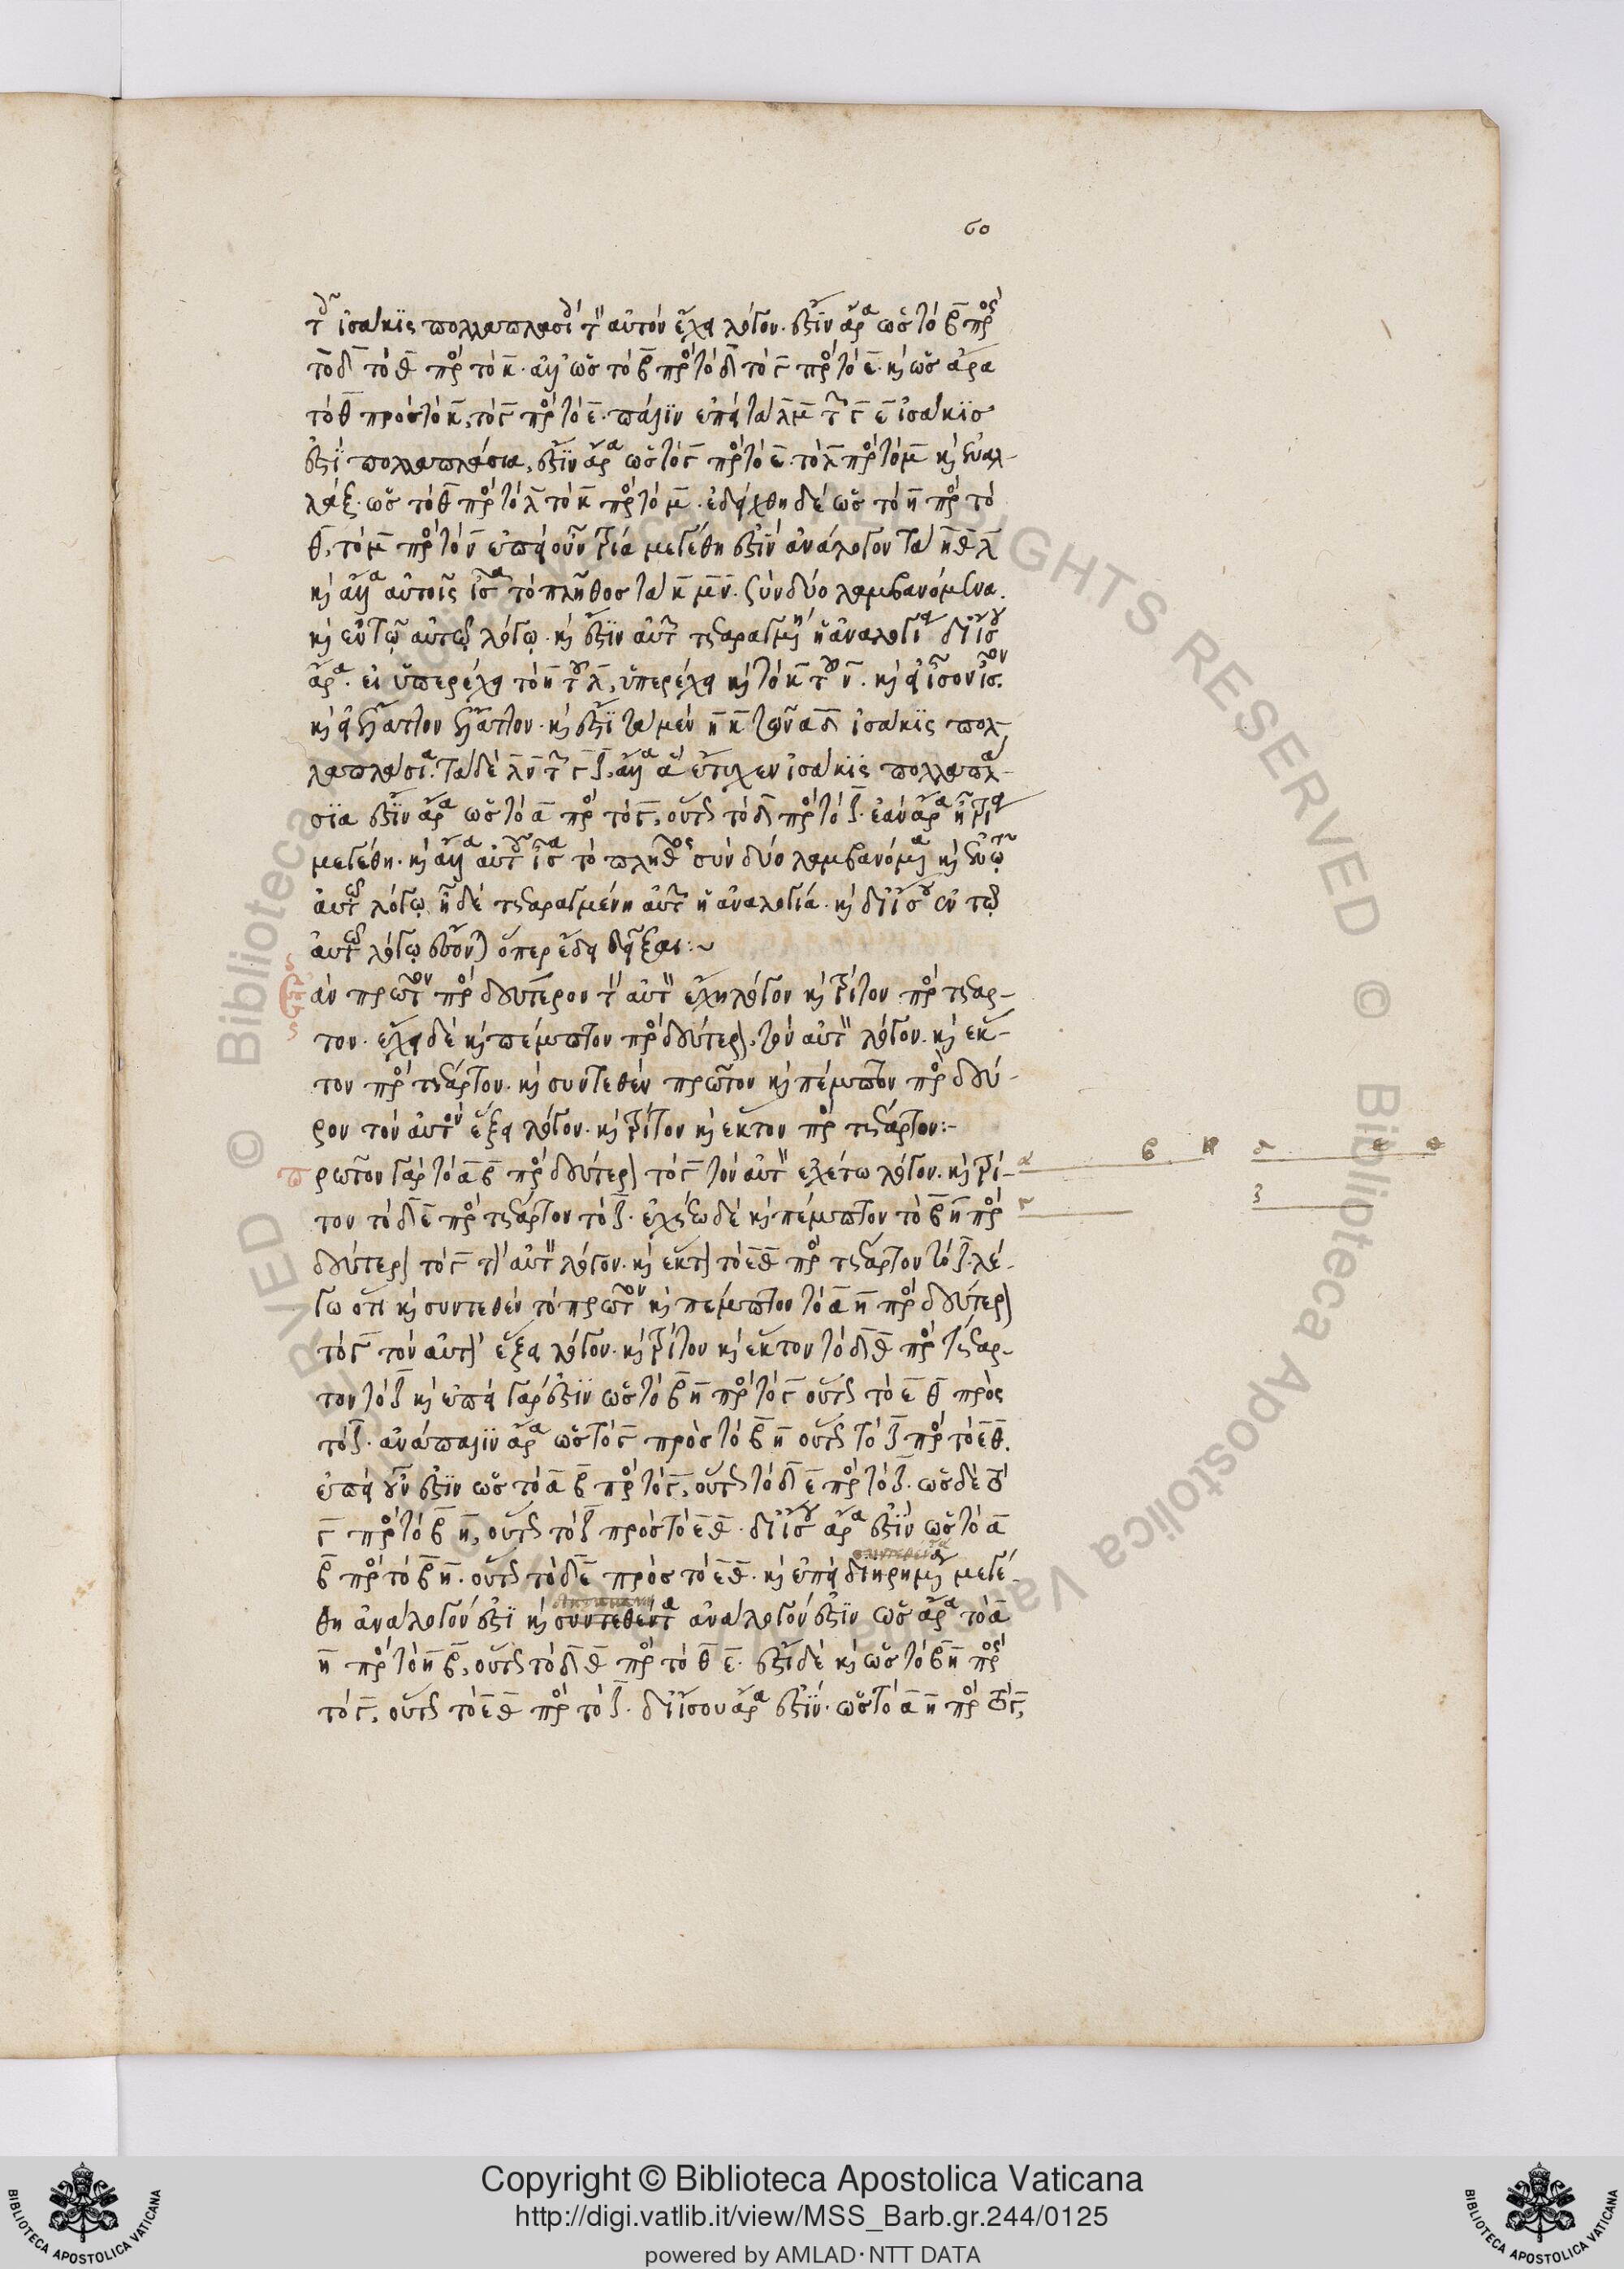 60
τὸ δ τὸ θ πρὸς τὸ κ. ἀλλ' ὡς τὸ β πρὸς τὸ δ τὸ ς πρὸς τὸ ε. καὶ ὡς ἄρα
τὸ θ πρὸς τὸ κ, τὸ ς πρὸς τὸ ε. πάλιν ἐπεὶ τὰ λ μ τῶν ς ε ἰσάκις
ἐστὶ πολλαπλάσια, ἔστιν ἄρα ὡς τὸ ς πρὸς τὸ ε. τὸ λ πρὸς τὸ μ καὶ ἐναλ-
λὰξ. ὡς τὸ θ πρὸς τὸ λ τὸ κ πρὸς τὸ μ. ἐδείχθη δὲ ὡς τὸ η πρὸς τὸ
θ, τὸ μ πρὸς τὸ ν ἐπεὶ οὖν τρία μεγέθη ἐστὶν ἀνάλογον τὰ η θ λ
καὶ ἄλλα αὐτοῖς ἴσα τὸ πλῆθος τὰ κ μ ν. σὺν δύο λαμβανόμενα.
καὶ ἐν τῷ αὐτῷ λόγῳ. καὶ ἔστιν αὐτῶν τεταραγμένη ἡ ἀναλογία δι' ἴσου
ἄρα. εἰ ὑπερέχει τὸ η τοῦ λ, ὑπερέχει καὶ τὸ κ τοῦ ν. καὶ εἰ ἴσον ἴσον.
καὶ εἰ ἔλαττον ἔλαττον. καὶ ἔστι τὰ μὲν η κ τῶν α δ ἰσάκις πολ-
λαπλάσια. τὰ δὲ λ ν τῶν ς ζ, ἄλλα ἃ ἔτυχεν ἰσάκις πολλαπλα-
σια ἔστιν ἄρα ὡς τὸ α πρὸς τὸ ς, οὕτως τὸ δ πρὸς τὸ ζ. ἐὰν ἄρα ᾖ τρία
μεγέθη. καὶ ἄλλα αὐτοῖς ἴσα τὸ πλῆθος σὺν δύο λαμβανόμενα καὶ ἐν τῷ
αὐτῷ λόγῳ ᾖ δὲ τεταραγμένη αὐτῶν ἡ ἀναλογία. καὶ δι' ἴσου ἐν τῷ
αὐτῷ λόγῳ ἔσονται ὅπερ ἔδει δεῖξαι:~
ἐὰν πρῶτον πρὸς δεύτερον τὸν αὐτὸν ἔχῃ λόγον καὶ τρίτον πρὸς τέταρ-
τον. ἔχει δὲ καὶ πέμπτον πρὸς δεύτερον. τὸν αὐτὸν λόγον. καὶ ἕκ-
τον πρὸς τέταρτον. καὶ συντεθὲν πρῶτον καὶ πέμπτον πρὸς δεύ-
ρον τὸν αὐτὸν ἕξει λόγον. καὶ τρίτον καὶ ἕκτον πρὸς τέταρτον:-
πρῶτον γὰρ τὸ α β πρὸς δεύτερον τὸ ς τὸν αὐτὸν ἐχέτω λόγον. καὶ τρί-
τον τὸ δ ε πρὸς τέταρτον τὸ ζ. ἐχέτω δὲ καὶ πέμπτον τὸ β η πρὸς
δεύτερον τὸ ς τὸν αὐτὸν λόγον. καὶ ἕκτον τὸ ε θ πρὸς τέταρτον τὸ ζ. λέ-
γω ὅτι καὶ συντεθὲν τὸ πρῶτον καὶ πέμπτον τὸ α η πρὸς δεύτερον
τὸ ς τὸν αὐτὸν ἕξει λόγον. καὶ τρίτον καὶ ἕκτον τὸ δ θ πρὸς τέταρ-
τον τὸ ζ καὶ ἐπεὶ γάρ ἐστιν ὡς τὸ β η πρὸς τὸ ς οὕτως τὸ ε θ πρὸς
τὸ ζ. ἀνάπαλιν ἄρα ὡς τὸ ς πρὸς τὸ β η οὕτως τὸ ζ πρὸς τὸ ε θ.
ἐπεὶ οὖν ἐστιν ὡς τὸ α β πρὸς τὸ ς, οὕτως τὸ δ ε πρὸς τὸ ζ. ὡς δὲ τὸ
ς πρὸς τὸ β η, οὕτως τὸ ζ πρὸς τὸ ε θ. δι' ἴσου ἄρα ἐστὶν ὡς τὸ α
β πρὸς τὸ β η. οὕτως τὸ δ ε πρὸς τὸ ε θ. καὶ ἐπεὶ διῃρημένα μεγέ-
θη ἀνάλογόν ἐστι καὶ συντεθέντα ἀνάλογόν ἐστιν ὡς ἄρα τὸ α
η πρὸς τὸ η β, οὕτως τὸ δ θ πρὸς τὸ θ ε. ἔστι δὲ καὶ ὡς τὸ β η πρὸς
τὸ ς, οὕτως τὸ ε θ πρὸς τὸ ζ. δι' ἴσου ἄρα ἐστὶν. ὡς τὸ α η πρὸς τὸ ς,
α β η δ ε θ
ς ζ
Copyright © Biblioteca Apostolica Vaticana
http://digi.vatlib.it/view/MSS_Barb.gr.244/0125
powered by AMLAD·NTT DATA
BIBLIOTECA APOSTOLICA VATICANA
BIBLIOTECA APOSTOLICA VATICANA